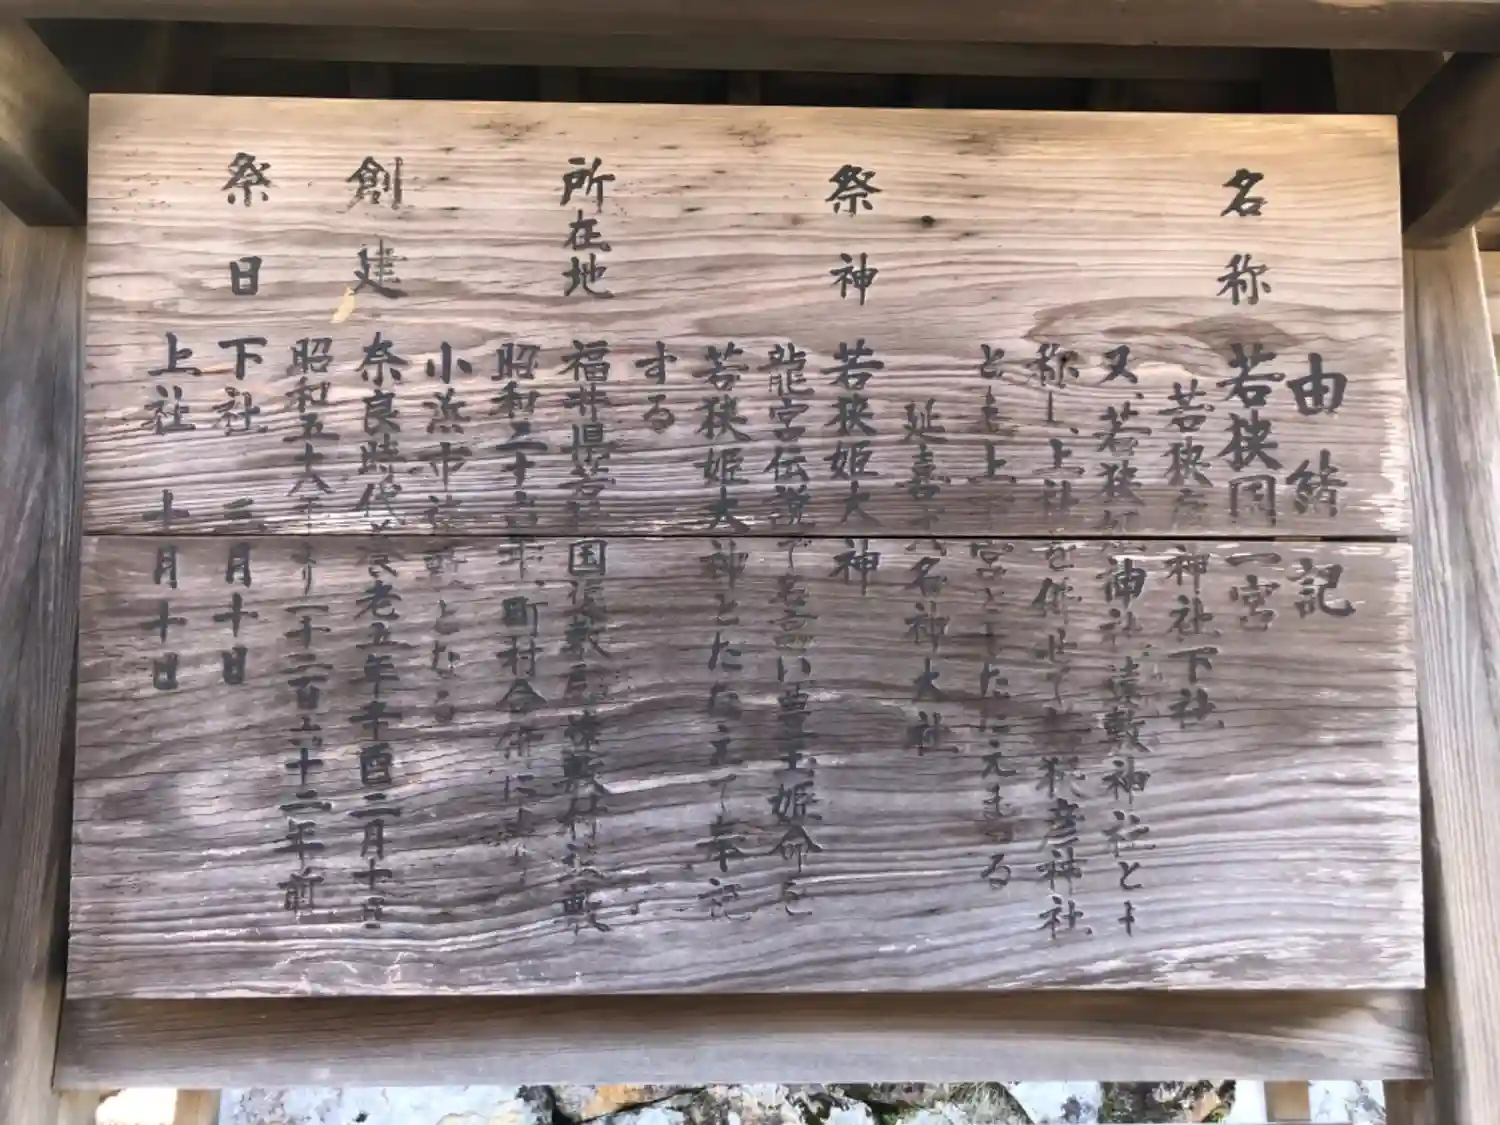 由緒記
名称 若狭国一宮
若狭 神社下社
又、若狭 神社遠敷神社とも
称し、上社を併せて 狭彦神社
とも上 宮ともたたえまつる
延喜式名神大社
祭神 若狭姫大神
龍宮伝説で名高い豊玉姫命を
若狭姫大神とたたえて奉祀
する
所在地 福井県 国遠敷 遠敷村遠敷
昭和二十六年、町村合併により
小浜市遠敷となる
創建 奈良時代 養老五年辛酉二月十日
昭和五十八年より一千二百六十二年前
祭日 下社 三月十日
上社 十月十日